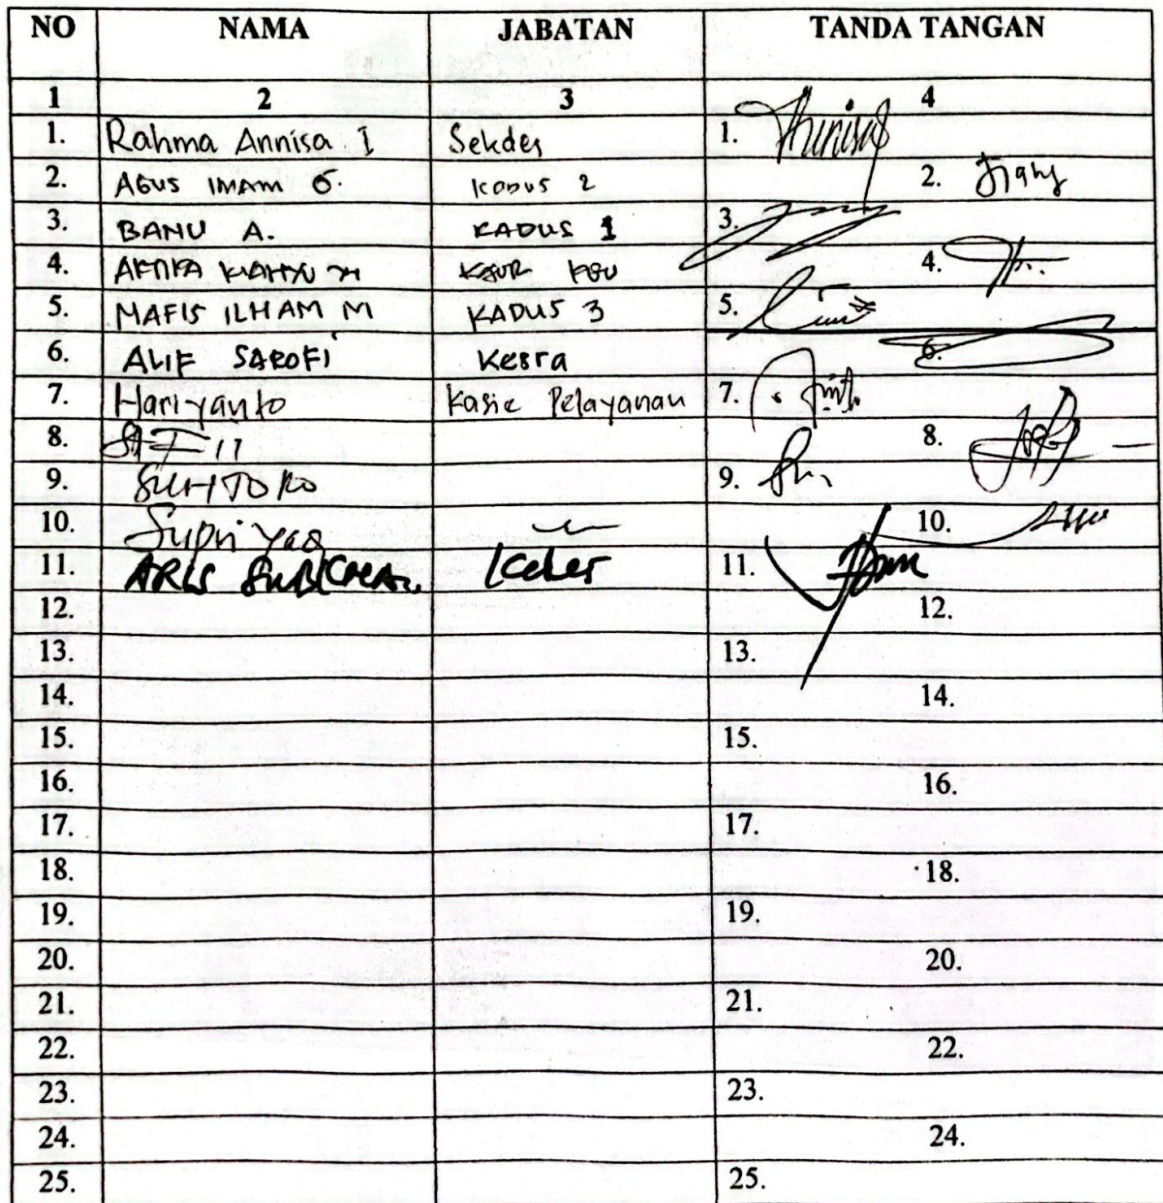 NO NAMA JABATAN TANDA TANGAN
1 2 3 4
1. Rahma Annisa I Sekdes 1.
2. AGUS IMAM G. KADUS 2 2.
3. BANU A. KADUS 1 3.
4. KAUR 4.
5. HAFIS ILHAM M KADUS 3 5.
6. ALIF SAROFI Kesra 6.
7. Hariyanto Kasie Pelayanan 7.
8. 8.
9. 9.
10. 10.
11. ARIS 11.
12. 12.
13. 13.
14. 14.
15. 15.
16. 16.
17. 17.
18. 18.
19. 19.
20. 20.
21. 21.
22. 22.
23. 23.
24. 24.
25. 25.